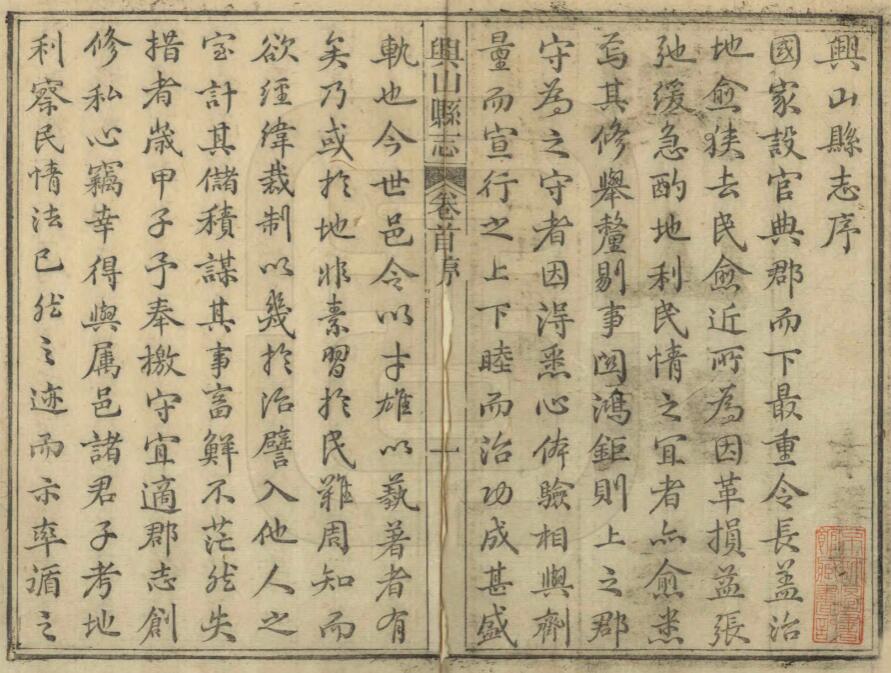 興山縣志序
國家設官典郡而下最重令長盖治
地愈狹去民愈近所為因革損益張
弛緩急酌地利民情之宜者亦愈悉
焉其修舉釐剔事関鴻鉅則上之郡
守為之守者因淂悉心体驗相與劑
量而宣行之上下睦而治功成甚盛
興山縣志 卷首序 一
軌也今世邑令以才雄以藝著者有
矣乃或扵地非素習扵民難周知而
欲經緯裁制以幾扵治譬入他人之
室計其儲積謀其事畜鮮不茫然失
措者歲甲子予奉檄守宜適郡志創
修私心竊幸得與属邑諸君子考地
利察民情法已然之迹而示率循之